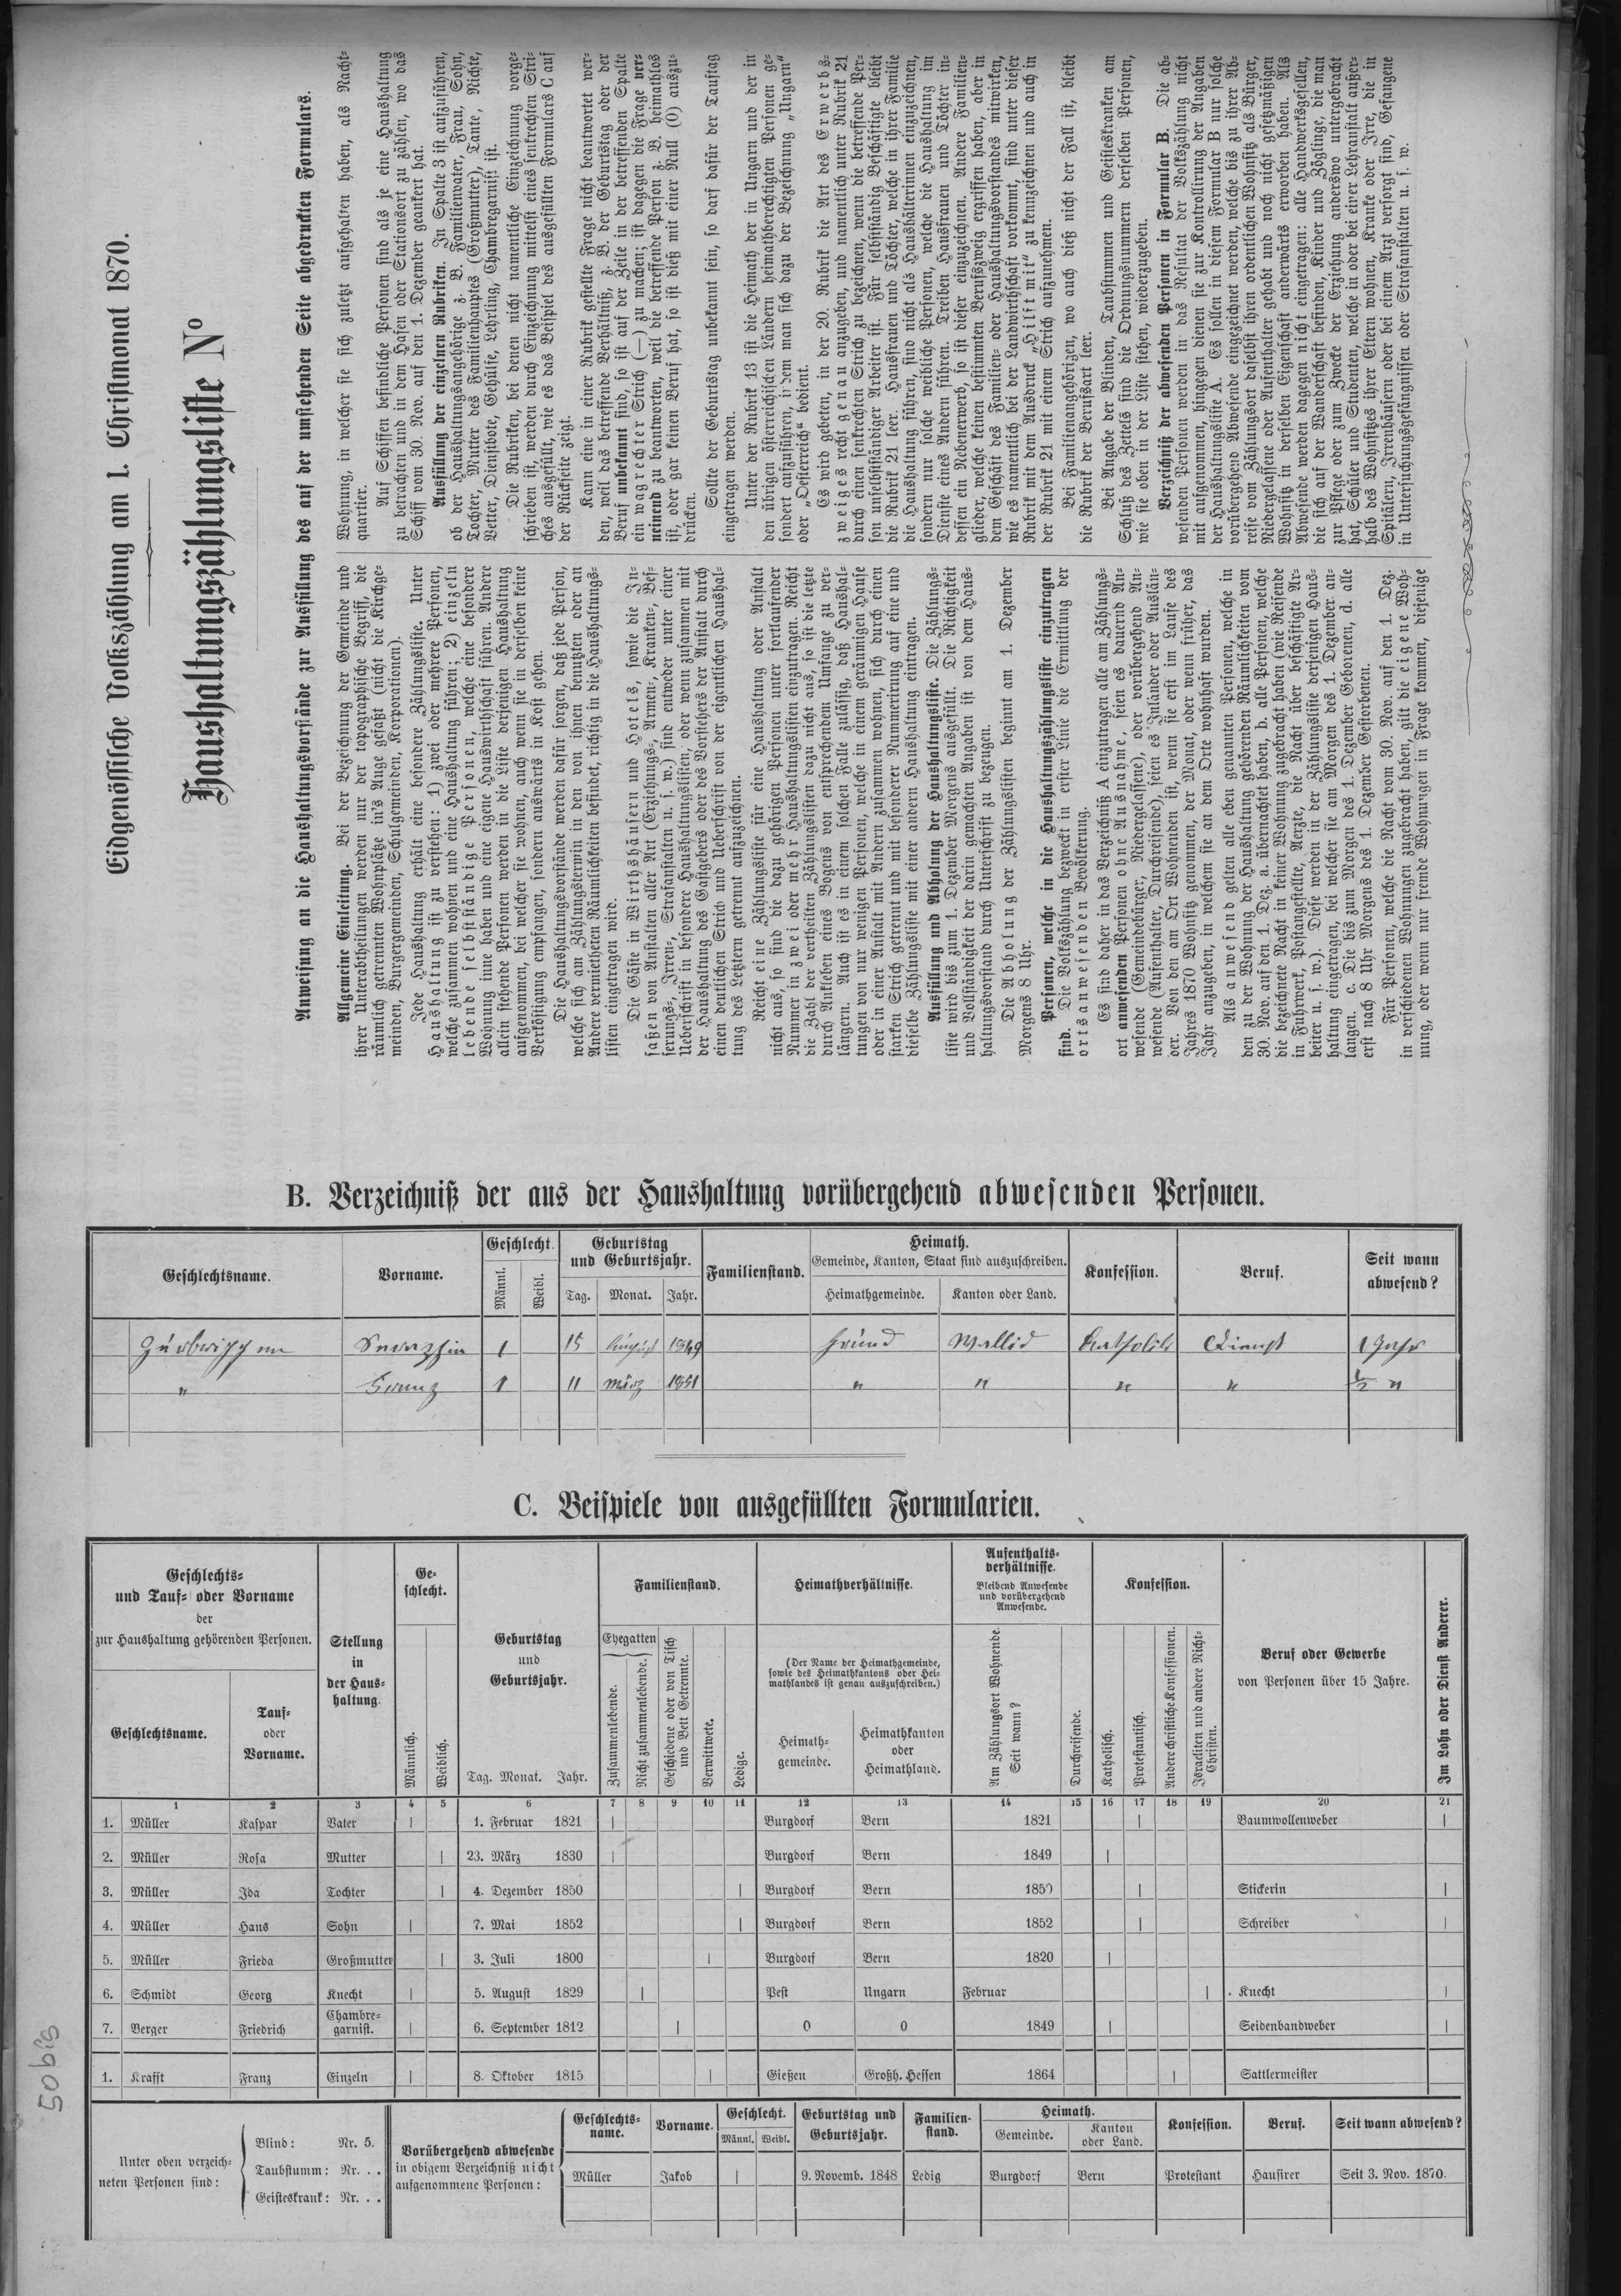 Eidgenössische Volkszählung am 1. Christmonat 1870.
Haushaltungszählungsliste No
Anweisung an die Haushaltungsvorstände zur Ausfüllung des auf der umstehenden Seite abgedruckten Formulars.
Allgemeine Einleitung. Bei der Bezeichnung der Gemeinde und
ihrer Unterabtheilungen werden nur der topographische Begriff, die
räumlich getrennten Wohnplätze in's Auge gefaßt (nicht die Kirchge-
meinden, Burgergemeinden, Schulgemeinden, Korporationen).
Jede Haushaltung erhält eine besondere Zählungsliste. Unter
Haushaltung ist zu verstehen: 1) zwei oder mehrere Personen,
welche zusammen wohnen und eine Haushaltung führen; 2) einzeln
lebende selbstständige Personen, welche eine besondere
Wohnung inne haben und eine eigene Hauswirthschaft führen. Andere
allein stehende Personen werden in die Liste derjenigen Haushaltung
aufgenommen, bei welcher sie wohnen, auch wenn sie in derselben keine
Verköstigung empfangen, sondern auswärts in Kost gehen.
Die Haushaltungsvorstände werden dafür sorgen, daß jede Person,
welche sich am Zählungstermin in den von ihnen benutzten oder an
Andere vermietheten Räumlichkeiten befindet, richtig in die Haushaltungs-
listen eingetragen wird.
Die Gäste in Wirthshäusern und Hotels, sowie die In-
saßen von Anstalten aller Art (Erziehungs-, Armen-, Kranken-, Bes-
serungs-, Irren-, Strafanstalten u. s. w.) sind entweder unter einer
Ueberschrift in besondere Haushaltungslisten, oder wenn zusammen mit
der Haushaltung des Gastgebers oder des Vorstehers der Anstalt durch
einen deutlichen Strich und Ueberschrift von der eigentlichen Haushal-
tung des Letztern getrennt aufzuzeichnen.
Reicht eine Zählungsliste für eine Haushaltung oder Anstalt
nicht aus, so sind die dazu gehörigen Personen unter fortlaufender
Nummer in zwei oder mehr Haushaltungslisten einzutragen. Reicht
die Zahl der vertheilten Zählungslisten dazu nicht aus, so ist die letzte
durch Ankleben eines Bogens von entsprechendem Umfange zu ver-
längern. Auch ist es in einem solchen Falle zulässig, daß Haushal-
tungen von nur wenigen Personen, welche in einem geräumigen Hause
oder in einer Anstalt mit Andern zusammen wohnen, sich durch einen
starken Strich getrennt und mit besonderer Nummerirung auf eine und
dieselbe Zählungsliste mit einer andern Haushaltung eintragen.
Ausfüllung und Abholung der Haushaltungsliste. Die Zählungs-
liste wird bis zum 1. Dezember Morgens ausgefüllt. Die Richtigkeit
und Vollständigkeit der darin gemachten Angaben ist von dem Haus-
haltungsvorstand durch Unterschrift zu bezeugen.
Die Abholung der Zählungslisten beginnt am 1. Dezember
Morgens 8 Uhr.
Personen, welche in die Haushaltungszählungsliste einzutragen
sind. Die Volkszählung bezweckt in erster Linie die Ermittlung der
ortsanwesenden Bevölkerung.
Es sind daher in das Verzeichniß A einzutragen alle am Zählungs-
ort anwesenden Personen ohne Ausnahme, seien es dauernd An-
wesende (Gemeindebürger, Niedergelassene), oder vorübergehend An-
wesende (Aufenthalter, Durchreisende), seien es Inländer oder Auslän-
der. Von den am Ort Wohnenden ist, wenn sie erst im Laufe des
Jahres 1870 Wohnsitz genommen, der Monat, oder wenn früher, das
Jahr anzugeben, in welchem sie an dem Orte wohnhaft wurden.
Als anwesend gelten alle eben genannten Personen, welche in
den zu der Wohnung der Haushaltung gehörenden Räumlichkeiten vom
30. Nov. auf den 1. Dez. a. übernachtet haben, b. alle Personen, welche
die bezeichnete Nacht in keiner Wohnung zugebracht haben (wie Reisende
in Fuhrwerk, Postangestellte, Aerzte, die Nacht über beschäftigte Ar-
beiter u. s. w.). Diese werden in der Zählungsliste derjenigen Haus-
haltung eingetragen, bei welcher sie am Morgen des 1. Dezember an-
langen. c. Die bis zum Morgen des 1. Dezember Geborenen, d. alle
erst nach 8 Uhr Morgens des 1. Dezember Gestorbenen.
Für Personen, welche die Nacht vom 30. Nov. auf den 1. Dez.
in verschiedenen Wohnungen zugebracht haben, gilt die eigene Woh-
nung, oder wenn nur fremde Wohnungen in Frage kommen, diejenige
Wohnung, in welcher sie sich zuletzt aufgehalten haben, als Nacht-
quartier.
Auf Schiffen befindliche Personen sind als je eine Haushaltung
zu betrachten und in dem Hafen oder Stationsort zu zählen, wo das
Schiff vom 30. Nov. auf den 1. Dezember geankert hat.
Ausfüllung der einzelnen Rubriken. In Spalte 3 ist aufzuführen,
ob der Haushaltungsangehörige z. B. Familienvater, Frau, Sohn,
Tochter, Mutter des Familienhauptes (Großmutter), Tante, Nichte,
Vetter, Dienstbote, Gehülfe, Lehrling, Chambregarnist ist.
Die Rubriken, bei denen nicht namentliche Einzeichnung vorge-
schrieben ist, werden durch Einzeichnung mittelst eines senkrechten Stri-
ches ausgefüllt, wie es das Beispiel des ausgefüllten Formulars C auf
der Rückseite zeigt.
Kann eine in einer Rubrik gestellte Frage nicht beantwortet wer-
den, weil das betreffende Verhältniß, z. B. der Geburtstag oder der
Beruf unbekannt sind, so ist auf der Zeile in der betreffenden Spalte
ein wagrechter Strich (—) zu machen; ist dagegen die Frage ver-
neinend zu beantworten, weil die betreffende Person z. B. heimathlos
ist, oder gar keinen Beruf hat, so ist dieß mit einer Null (0) auszu-
drücken.
Sollte der Geburtstag unbekannt sein, so darf dafür der Tauftag
eingetragen werden.
Unter der Rubrik 13 ist die Heimath der in Ungarn und der in
den übrigen österreichischen Ländern heimathberechtigten Personen ge-
sondert aufzuführen, indem man sich dazu der Bezeichnung „Ungarn“
oder „Oesterreich“ bedient.
Es wird gebeten, in der 20. Rubrik die Art des Erwerbs-
zweiges recht genau anzugeben, und namentlich unter Rubrik 21
durch einen senkrechten Strich zu bezeichnen, wenn die betreffende Per-
son unselbstständiger Arbeiter ist. Für selbstständig Beschäftigte bleibt
die Rubrik 21 leer. Hausfrauen und Töchter, welche in ihrer Familie
die Haushaltung führen, sind nicht als Haushälterinnen einzuzeichnen,
sondern nur solche weibliche Personen, welche die Haushaltung im
Dienste eines Andern führen. Treiben Hausfrauen und Töchter in-
dessen ein Nebenerwerb, so ist dieser einzuzeichnen. Andere Familien-
glieder, welche keinen bestimmten Berufszweig ergriffen haben, aber in
dem Geschäft des Familien- oder Haushaltungsvorstandes mitwirken,
wie es namentlich bei der Landwirthschaft vorkommt, sind unter dieser
Rubrik mit dem Ausdruck „Hilft mit“ zu kennzeichnen und auch in
der Rubrik 21 mit einem Strich aufzunehmen.
Bei Familienangehörigen, wo auch dieß nicht der Fall ist, bleibt
die Rubrik der Berufsart leer.
Bei Angabe der Blinden, Taubstummen und Geisteskranken am
Schluß des Zettels sind die Ordnungsnummern derselben Personen,
wie sie oben in der Liste stehen, wiederzugeben.
Verzeichniß der abwesenden Personen in Formular B. Die ab-
wesenden Personen werden in das Resultat der Volkszählung nicht
mit aufgenommen, hingegen dienen sie zur Kontrollirung der Angaben
der Haushaltungsliste A. Es sollen in diesem Formular B nur solche
vorübergehend Abwesende eingezeichnet werden, welche bis zu ihrer Ab-
reise vom Zählungsort daselbst ihren ordentlichen Wohnsitz als Bürger,
Niedergelassene oder Aufenthalter gehabt und noch nicht gesetzmäßigen
Wohnsitz in derselben Eigenschaft anderwärts erworben haben. Als
Abwesende werden dagegen nicht eingetragen: alle Handwerksgesellen,
die sich auf der Wanderschaft befinden, Kinder und Zöglinge, die man
zur Pflege oder zum Zwecke der Erziehung anderswo untergebracht
hat, Schüler und Studenten, welche in oder bei einer Lehranstalt außer-
halb des Wohnsitzes ihrer Eltern wohnen, Kranke oder Irre, die in
Spitälern, Irrenhäusern oder bei einem Arzt versorgt sind, Gefangene
in Untersuchungsgefängnissen oder Strafanstalten u. s. w.
B. Verzeichniß der aus der Haushaltung vorübergehend abwesenden Personen.
Geschlechtsname. Vorname. Geschlecht. Männl. Weibl. Geburtstag und Geburtsjahr. Tag. Monat. Jahr. Familienstand. Heimath. Gemeinde, Kanton, Staat sind auszuschreiben. Heimathgemeinde. Kanton oder Land. Konfession. Beruf. Seit wann abwesend?
1 15 August 1849 Wallis Katholik Dienst 1 Jahr
" Franz 1 11 März 1851 " " " " ½ "
C. Beispiele von ausgefüllten Formularien.
Geschlechts- und Tauf- oder Vorname der zur Haushaltung gehörenden Personen. Geschlechtsname. Tauf- oder Vorname.
Stellung in der Haushaltung.
Geschlecht. Männlich. Weiblich.
Geburtstag und Geburtsjahr. Tag. Monat. Jahr.
Familienstand. Ehegatten Zusammenlebende. Nicht zusammenlebende. Geschiedene oder von Tisch und Bett Getrennte. Verwittwete. Ledige.
Heimathverhältnisse. (Der Name der Heimathgemeinde, sowie des Heimathkantons oder Heimathlandes ist genau auszuschreiben.) Heimathgemeinde. Heimathkanton oder Heimathland.
Aufenthaltsverhältnisse. Bleibend Anwesende und vorübergehend Anwesende. Am Zählungsort Wohnende. Seit wann? Durchreisende.
Konfession. Katholisch. Protestantisch. Andere christliche Konfessionen. Israeliten und andere Nicht-Christen.
Beruf oder Gewerbe von Personen über 15 Jahre.
Im Lohn oder Dienst Anderer.
1 2 3 4 5 6 7 8 9 10 11 12 13 14 15 16 17 18 19 20 21
1. Müller Kaspar Vater | 1. Februar 1821 | Burgdorf Bern 1821 | Baumwollenweber |
2. Müller Rosa Mutter | 23. März 1830 | Burgdorf Bern 1849 |
3. Müller Ida Tochter | 4. Dezember 1850 | Burgdorf Bern 1850 | Stickerin |
4. Müller Hans Sohn | 7. Mai 1852 | Burgdorf Bern 1852 | Schreiber |
5. Müller Frieda Großmutter | 3. Juli 1800 | Burgdorf Bern 1820 |
6. Schmidt Georg Knecht | 5. August 1829 | Pest Ungarn Februar | Knecht |
7. Berger Friedrich Chambregarnist. | 6. September 1812 | 0 0 1849 | Seidenbandweber |
1. Krafft Franz Einzeln | 8. Oktober 1815 | Gießen Großh. Hessen 1864 | Sattlermeister
Unter oben verzeichneten Personen sind:
Blind: Nr. 5.
Taubstumm: Nr. . .
Geisteskrank: Nr. . .
Vorübergehend abwesende in obigem Verzeichniß nicht aufgenommene Personen:
Geschlechtsname. Vorname. Geschlecht. Männl. Weibl. Geburtstag und Geburtsjahr. Familienstand. Heimath. Gemeinde. Kanton oder Land. Konfession. Beruf. Seit wann abwesend?
Müller Jakob | 9. Novemb. 1848 Ledig Burgdorf Bern Protestant Hausirer Seit 3. Nov. 1870.
50 bis